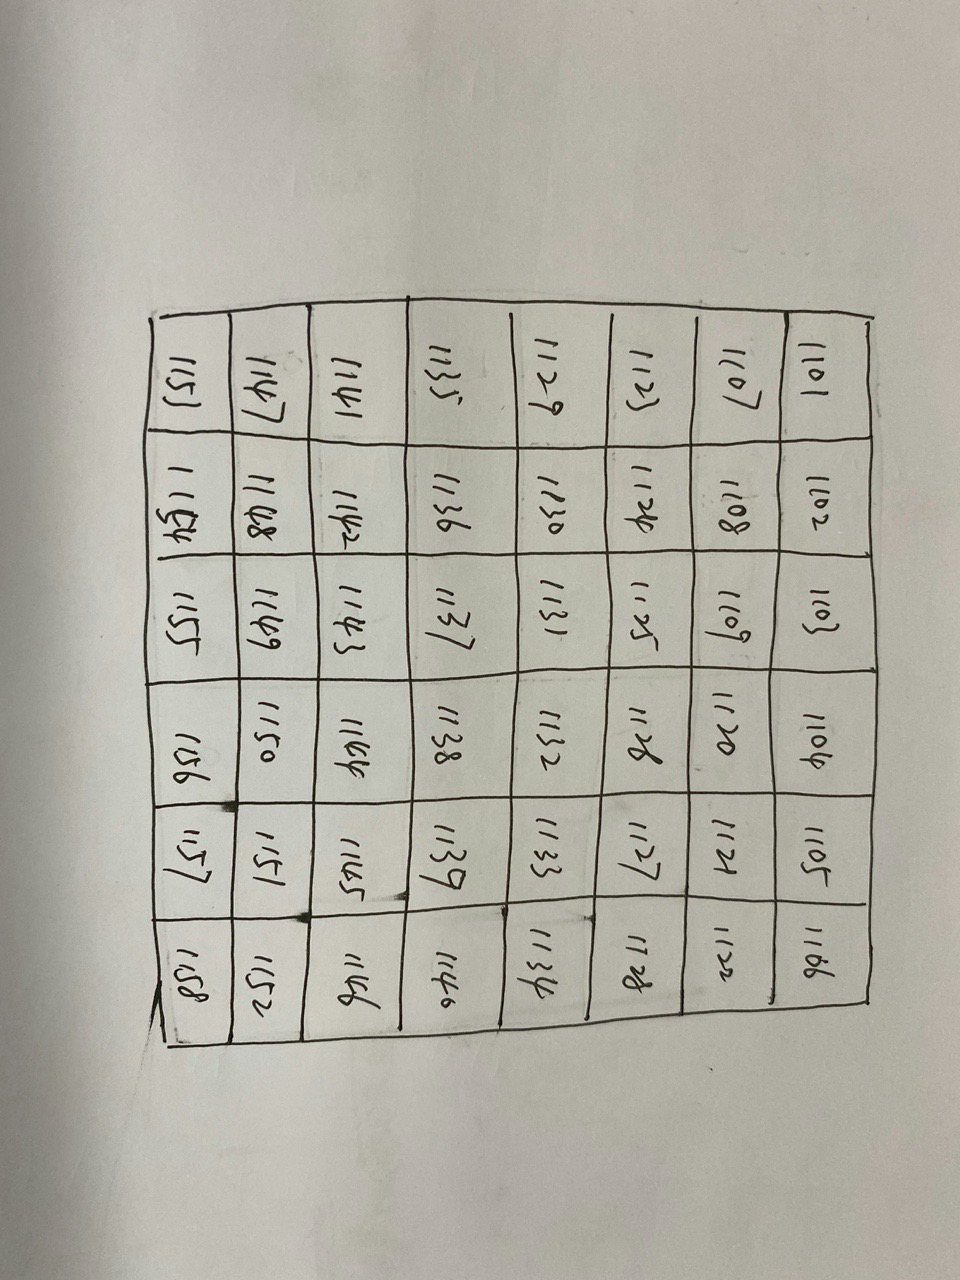 1101 1102 1103 1104 1105 1106
1107 1108 1109 1120 1121 1122
1123 1124 1125 1126 1127 1128
1129 1130 1131 1132 1133 1134
1135 1136 1137 1138 1139 1140
1141 1142 1143 1144 1145 1146
1147 1148 1149 1150 1151 1152
1153 1154 1155 1156 1157 1158